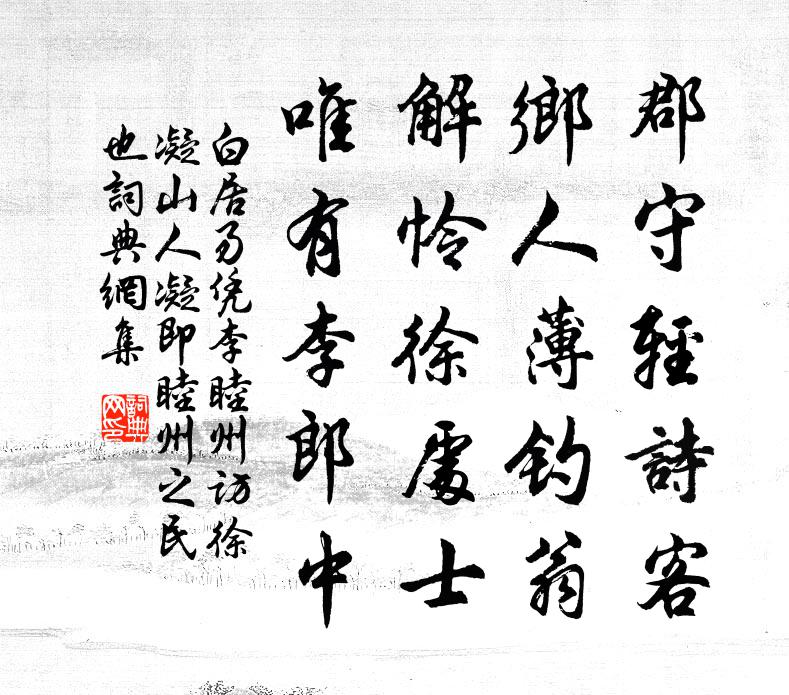 郡守輕詩客
鄉人薄釣翁
解憐徐處士
唯有李郎中
白居易凭李睦州访徐
凝山人凝即睦州之民
也詞典網集
詞典
网印